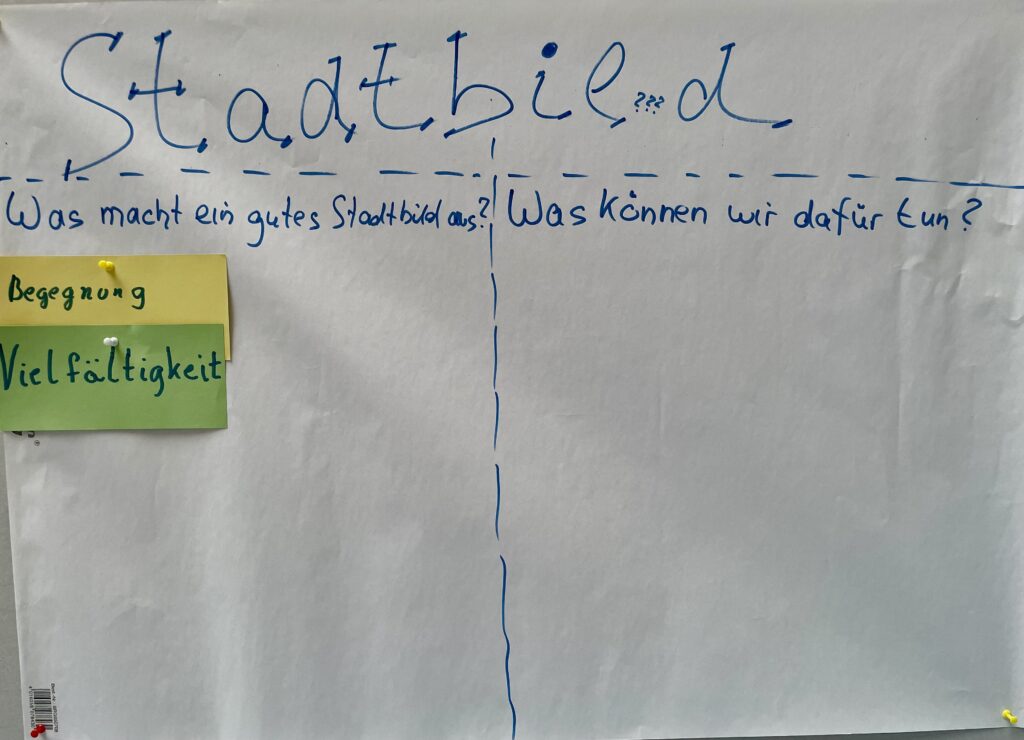 Stadtbil???d
Was macht ein gutes Stadtbild aus?
Was können wir dafür tun?
Begegnung
Vielfältigkeit